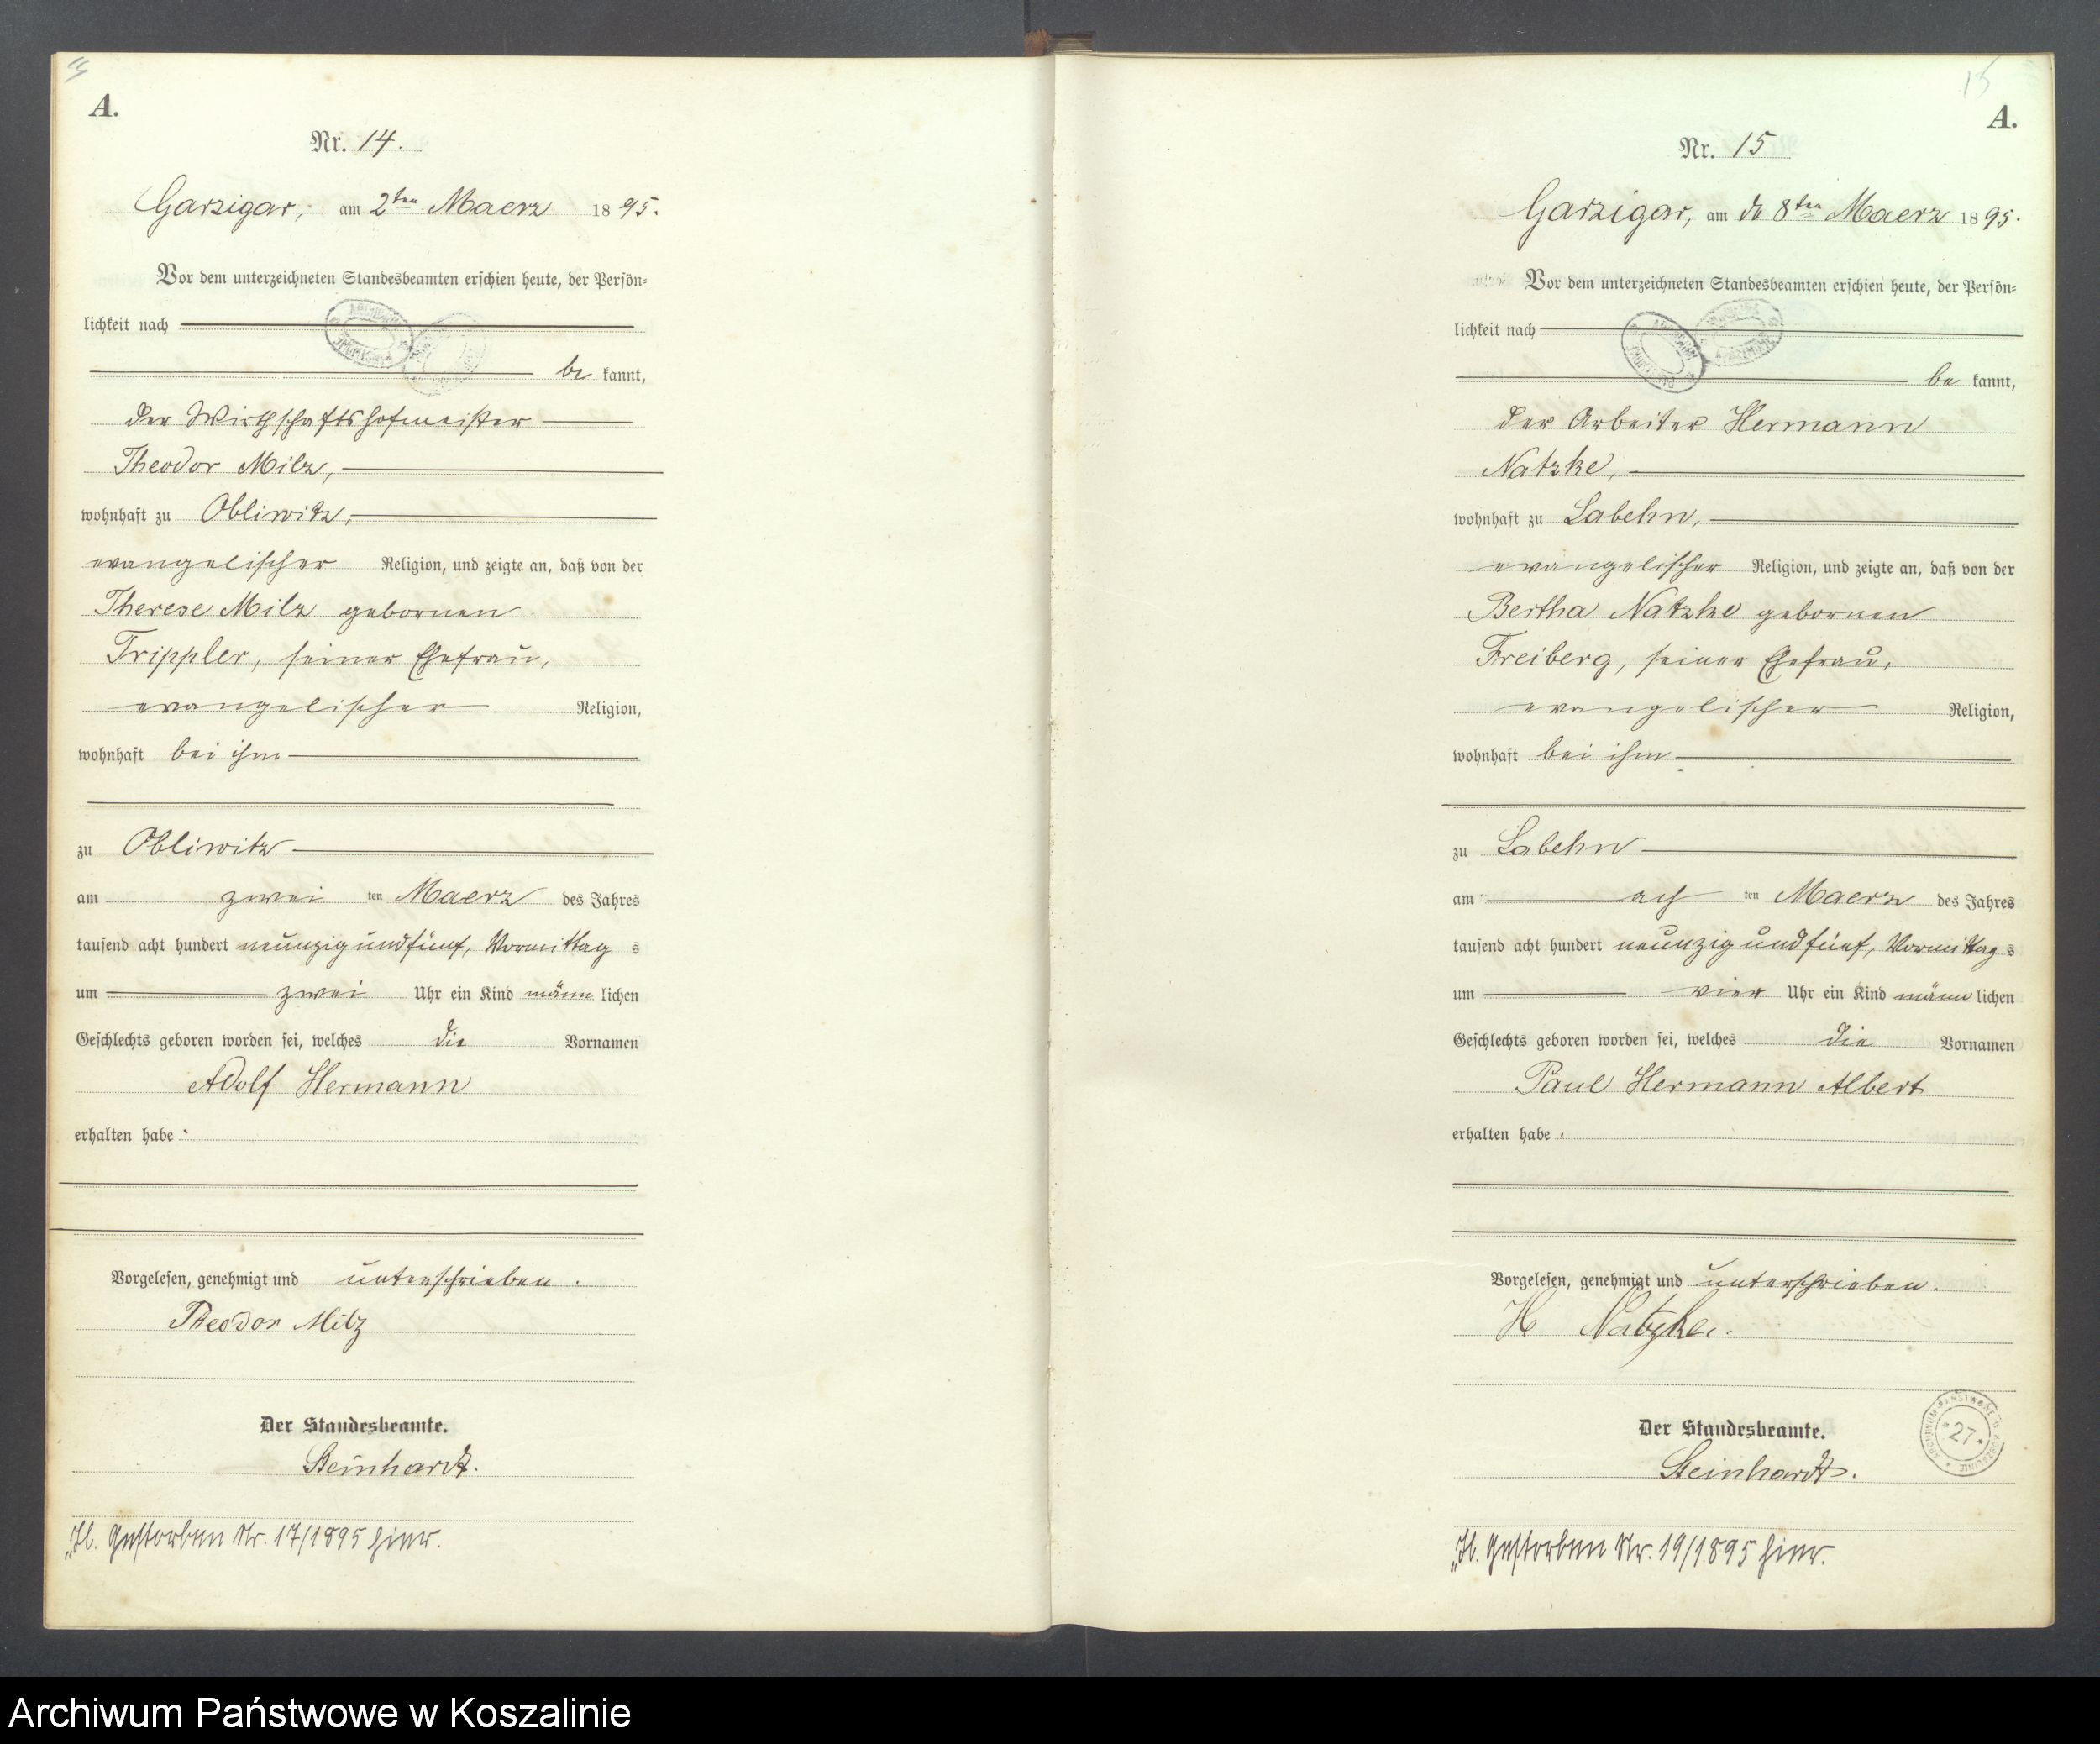 A.
Nr. 14.
Garzigar, am 2ten Maerz 1895.
Vor dem unterzeichneten Standesbeamten erschien heute, der Persön-
lichkeit nach
be kannt,
der Wirthschaftshofmeister
Theodor Milz,
wohnhaft zu Obliwitz,
evangelischer Religion, und zeigte an, daß von der
Therese Milz gebornen
Trippler, seiner Ehefrau,
evangelischer Religion,
wohnhaft bei ihm
zu Obliwitz
am zwei ten Maerz des Jahres
tausend acht hundert neunzig und fünf, Vormittag s
um zwei Uhr ein Kind männ lichen
Geschlechts geboren worden sei, welches die Vornamen
Adolf Hermann
erhalten habe.
Vorgelesen, genehmigt und unterschrieben.
Theodor Milz
Der Standesbeamte.
Steinhardt.
Gestorben Nr. 17/1895 hier.
15
A.
Nr. 15
Garzigar, am 8ten Maerz 1895.
Vor dem unterzeichneten Standesbeamten erschien heute, der Persön-
lichkeit nach
be kannt,
der Arbeiter Hermann
Natzke,
wohnhaft zu Labehn,
evangelischer Religion, und zeigte an, daß von der
Bertha Natzke gebornen
Freiberg, seiner Ehefrau,
evangelischer Religion,
wohnhaft bei ihm
zu Labehn
am ach ten Maerz des Jahres
tausend acht hundert neunzig und fünf, Vormittag s
um vier Uhr ein Kind männ lichen
Geschlechts geboren worden sei, welches die Vornamen
Paul Hermann Albert
erhalten habe.
Vorgelesen, genehmigt und unterschrieben.
H Natzke.
Der Standesbeamte.
Steinhardt.
27
Gestorben Nr. 19/1895 hier.
Archiwum Państwowe w Koszalinie